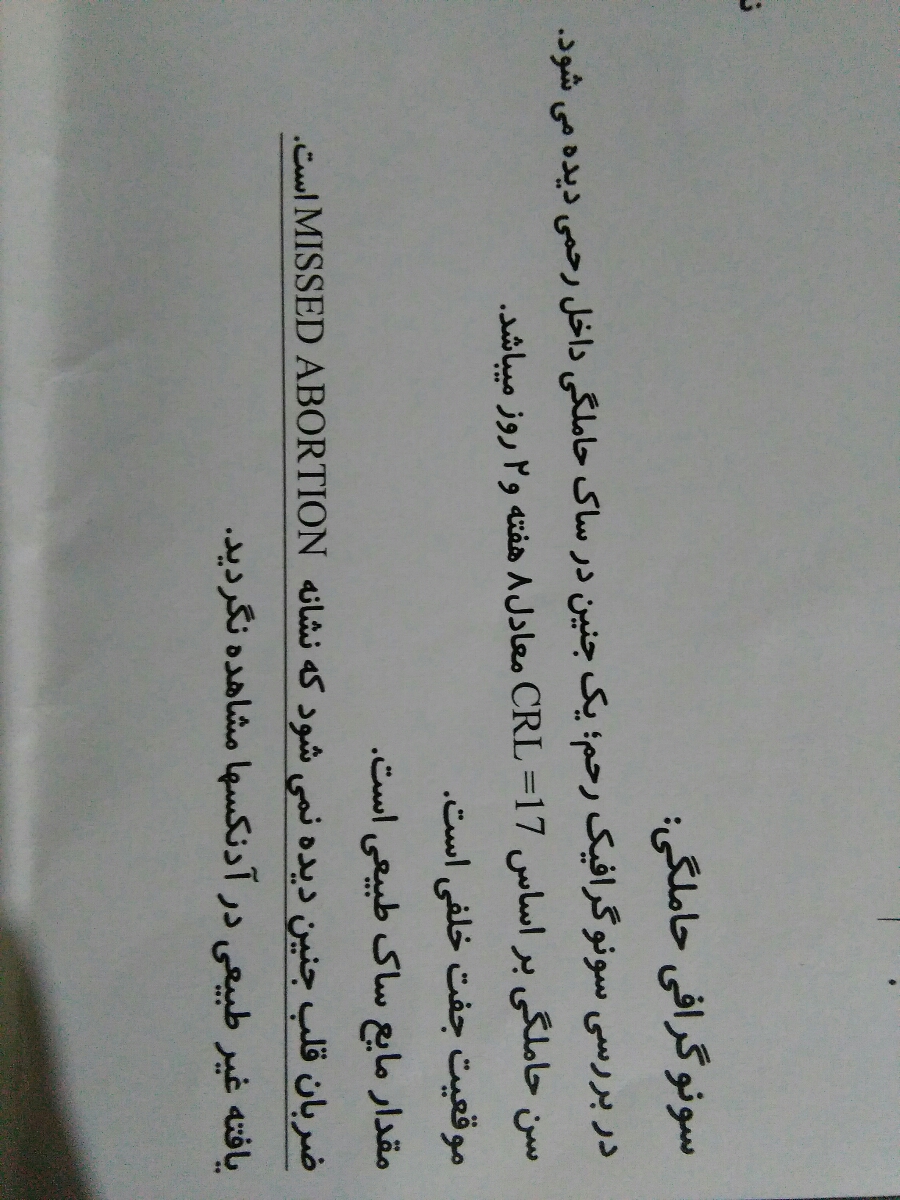 سونوگرافی حاملگی:
در بررسی سونوگرافیک رحم؛ یک جنین در ساک حاملگی داخل رحمی دیده می شود.
سن حاملگی بر اساس CRL =17 معادل ۸ هفته و ۲ روز میباشد.
موقعیت جفت خلفی است.
مقدار مایع ساک طبیعی است.
ضربان قلب جنین دیده نمی شود که نشانه MISSED ABORTION است.
یافته غیر طبیعی در آدنکسها مشاهده نگردید.